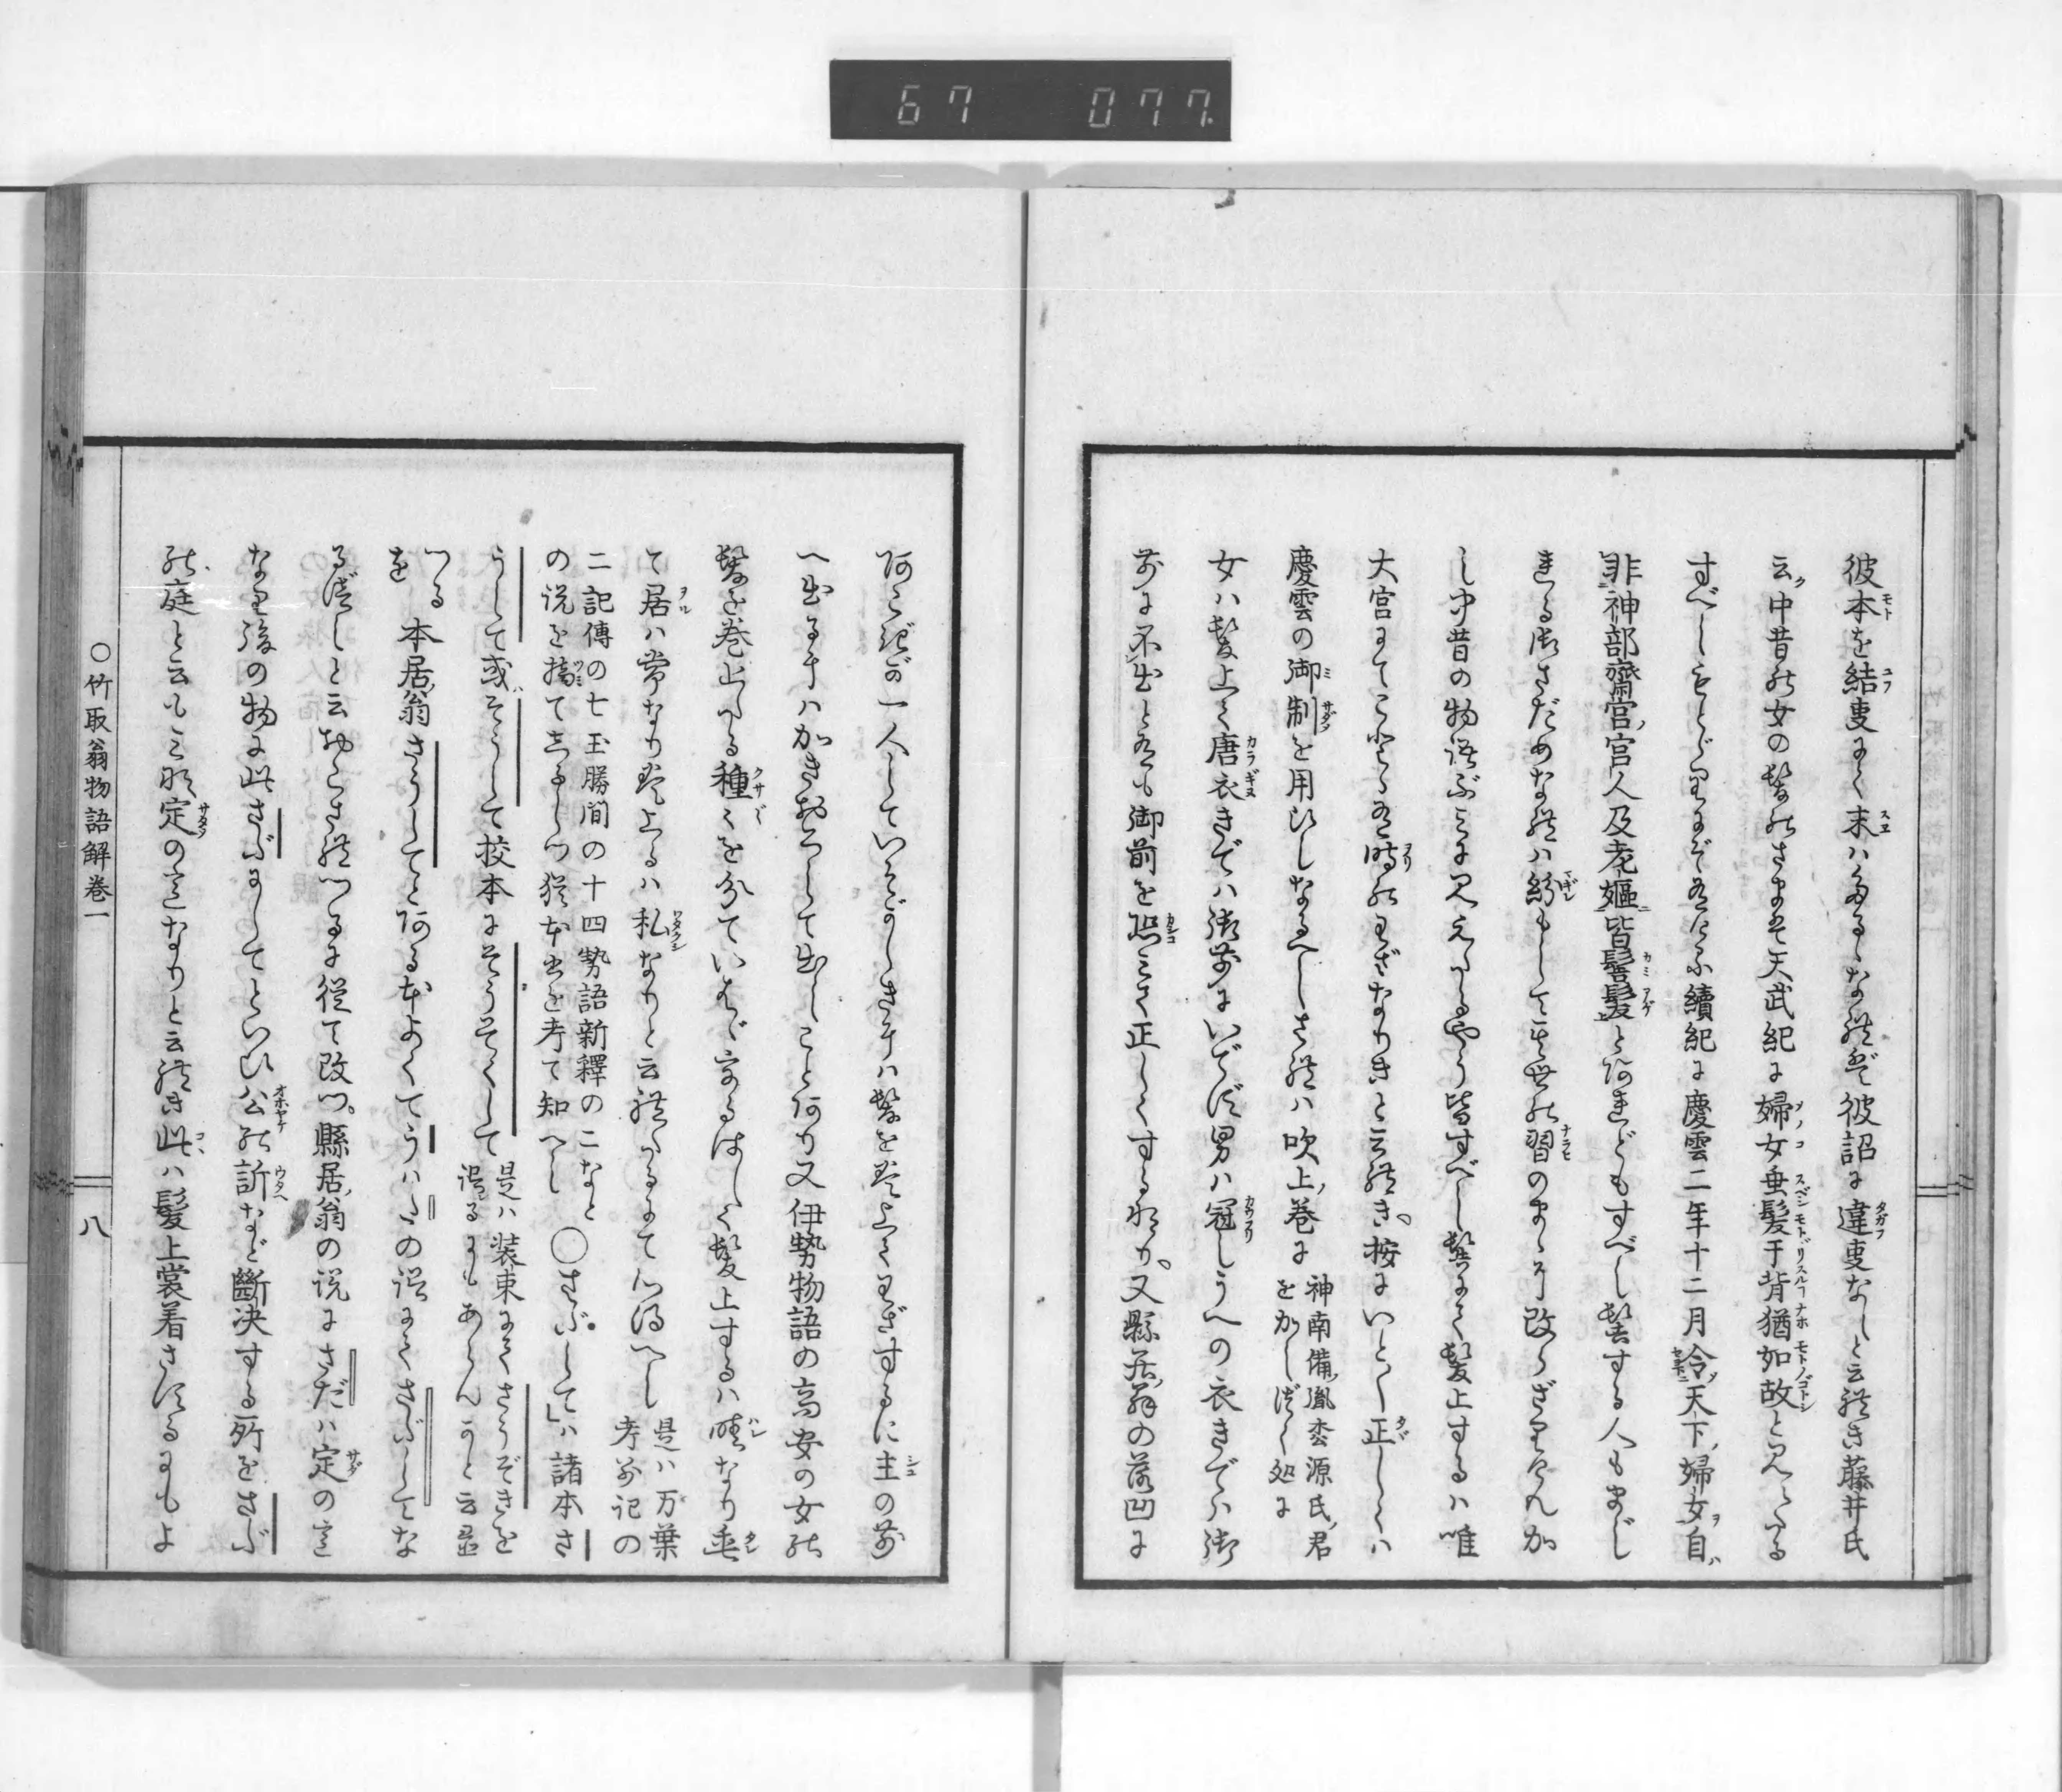 67 077
彼本を結叓よく末ハ多るゝなれど彼詔に違叓なしと云れき藤井氏
云中昔の女の髪のさまそ天武紀に婦女垂髪于背猶如故と見えたる
すべしもとゞりにぞ有ける續紀に慶雲二年十二月令天下婦女自
非神部齋宮宮人及老嫗皆髻髪とあれどもすべし髪する人もまじ
れる御さだめなれハ紛もして其世の習のまゝに改らざりけんか
し中昔の物語ぶみに見えたるやう皆すべし髪にて髪上するハ唯
大宮にてこと〳〵有時のわざなりきと云れき按にいと〳〵正しくハ
慶雲の御制を用ひしなるべしされハ吹上巻に神南備胤枩源氏君
をかしづく処に
女ハ髪上て唐衣きでハ御前にいでず男ハ冠しうへの衣きでハ御
前に不出と有も御前を恐ミて正しくするなり又縣居翁の落凹に
あこぎが一人していそがしき時ハ髪を巻上てわざするに主の前
へ出る时ハかきおろして出しことあり又伊勢物語の高安の女の
髪を巻上たる種々を分ていはゞ言るはしく髪上するハ晴なり垂
て居ハ常なり巻上るハ私なりと云れたるにて心得べし是ハ万葉
考前記の
二記傳の七玉勝間の十四勢語新釋の二なと
の説を摘て志るしつ猶本書を考て知へし○さぶして」ハ諸本さ
うして或そうして挍本にそうぞくして是ハ装束にてさうぞきを
誤るにもあらんかと云愚
つる
を本居翁さうしてとある本よくてうハたの誤にてさだしてな
るべしと云おこされつるに従て改つ縣居翁の説にさだハ定の意
なり後の物に此さだにしてといひ公の訴など斷决する所をさだ
の庭と云もミな定の意なりと云れき此ハ髪上裳着さするにもよ
○竹取翁物語解巻一
八